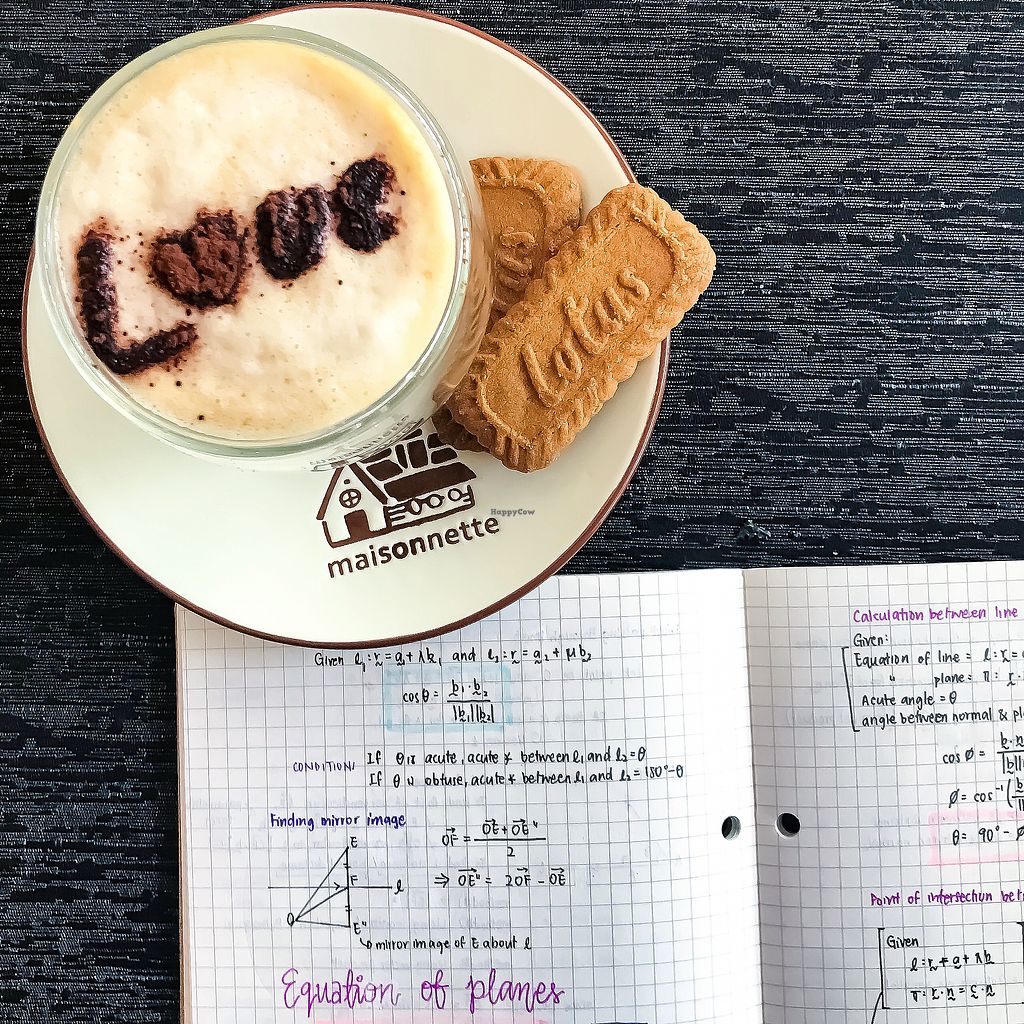 Love
Lotus
maisonnette
HappyCow
Given ℓ₁: r = a₁ + λb₁ and ℓ₂: r = a₂ + μb₂
cosθ = b₁·b₂ / |b₁||b₂|
CONDITION/ If θ is acute, acute ∡ between ℓ₁ and ℓ₂ = θ
If θ is obtuse, acute ∡ between ℓ₁ and ℓ₂ = 180° - θ
Finding mirror image
OF = OE + OE" / 2
⇒ OE" = 2OF - OE
E
F
ℓ
O
E"
mirror image of E about ℓ
Equation of planes
Calculation between line
Given:
Equation of line = ℓ: r =
" plane = π: r.
Acute angle = θ
angle between normal &
cos Ø = b·n / |b|
Ø = cos⁻¹(
θ = 90° - Ø
Point of intersection
Given
ℓ: r = a + λb
π: r·n = c·n